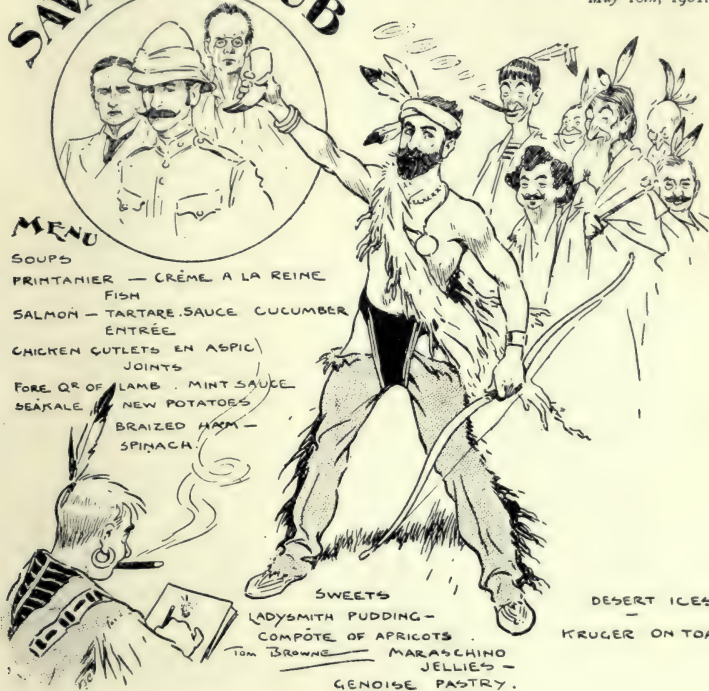 May
MENU
SOUPS
PRINTANIER — CRÈME A LA REINE
FISH
SALMON — TARTARE. SAUCE CUCUMBER
ENTRÉE
CHICKEN CUTLETS EN ASPIC
JOINTS
FORE QR OF LAMB . MINT SAUCE
SEAKALE NEW POTATOES
BRAIZED HAM —
SPINACH.
SWEETS
LADYSMITH PUDDING —
COMPÔTE OF APRICOTS .
TOM BROWNE
MARASCHINO
JELLIES —
GENOISE PASTRY.
DESERT ICES
—
KRUGER ON